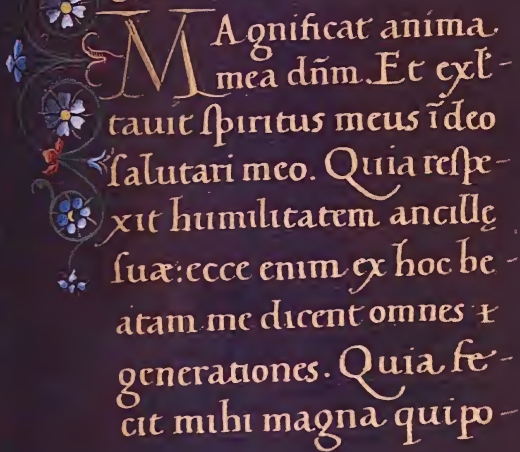 MAgnificat anima
mea dn̄m. Et exl-
tauit ſpiritus meus īdeo
ſalutari meo. Quia reſpe-
xit humilitatem ancillę
ſuæ: ecce enim ex hoc be-
atam me dicent omnes
generationes. Quia fe-
cit mihi magna qui po-